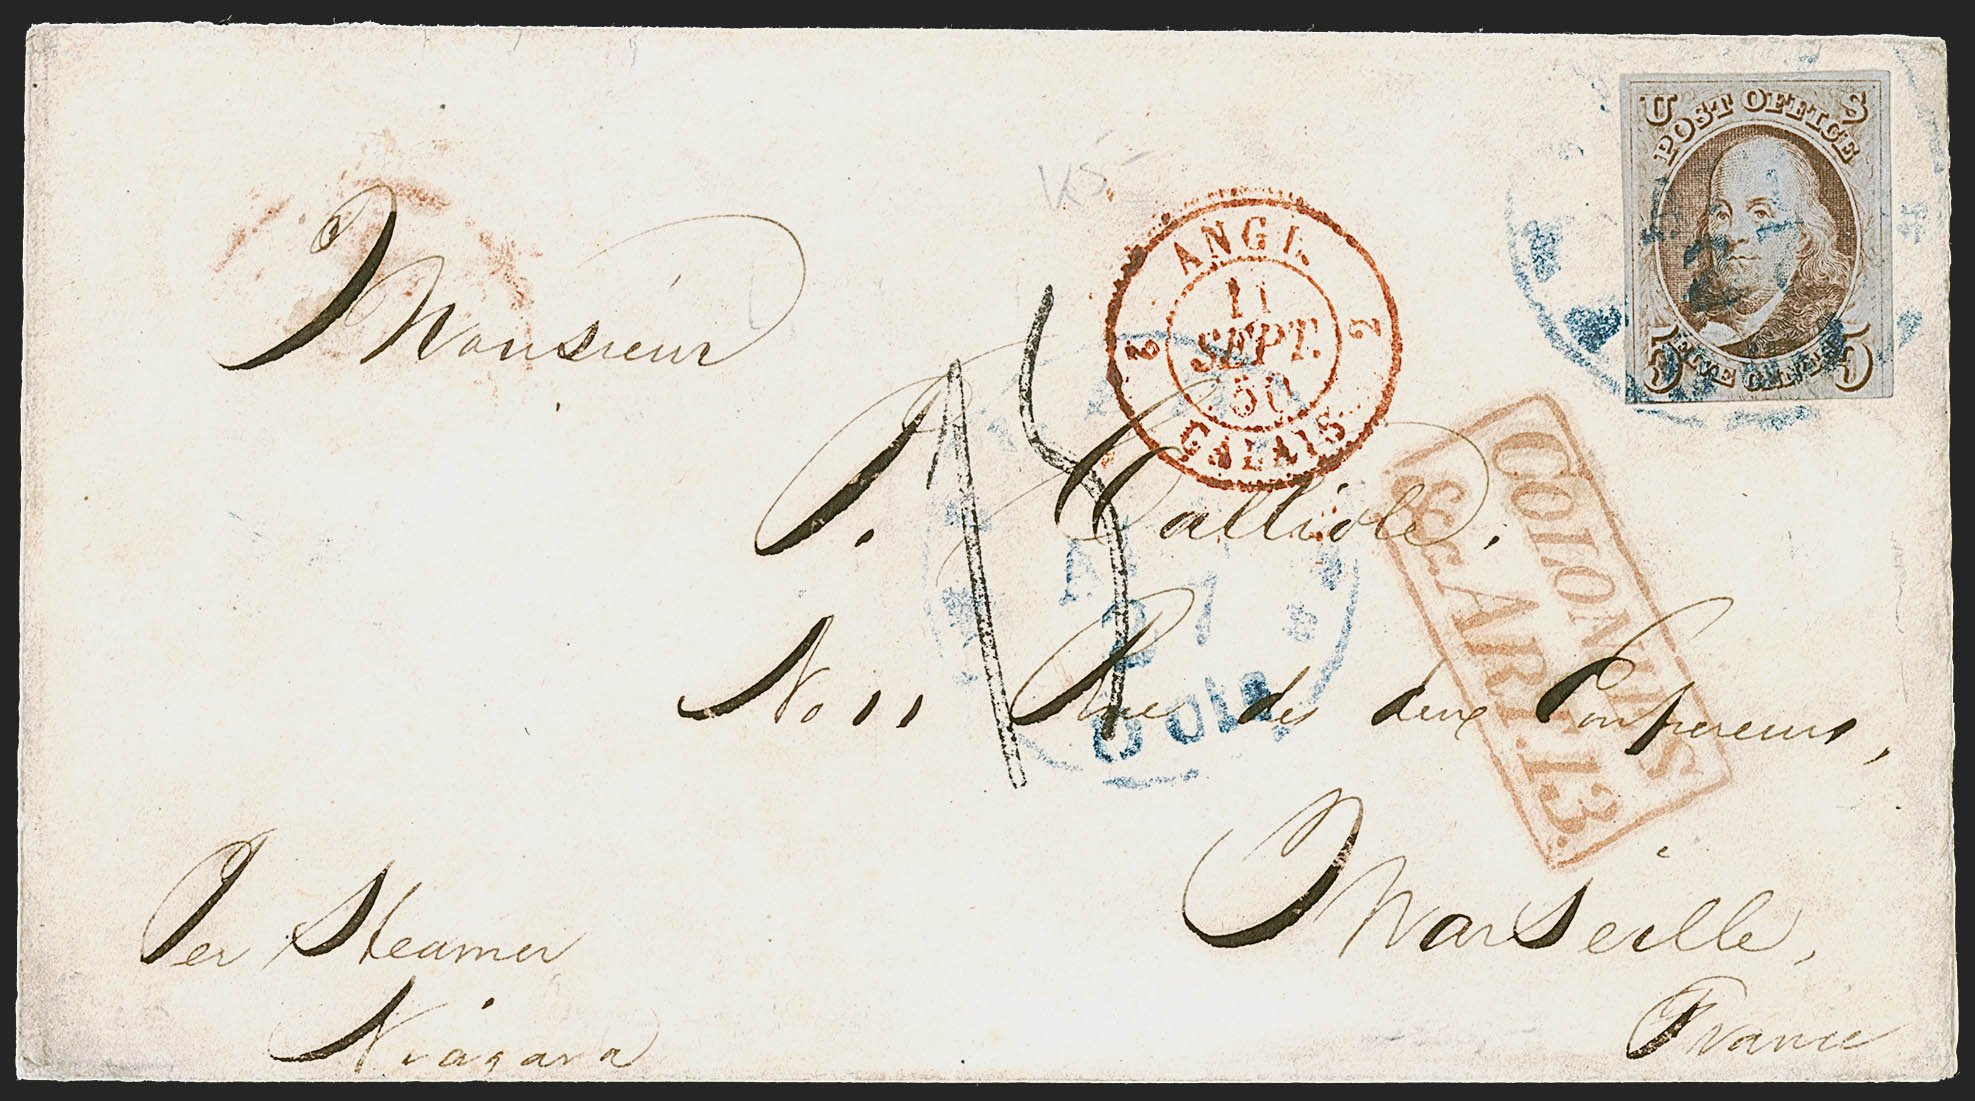 U S
POST OFFICE
5 FIVE CENTS 5
ANGL.
11
SEPT.
50
2 2
CALAIS.
COLONIES
&c. ART. 13.
15
Monsieur
P. Calliole,
No 11 Rue des deux Empereurs,
Marseille,
France
Per Steamer
Niagara
27